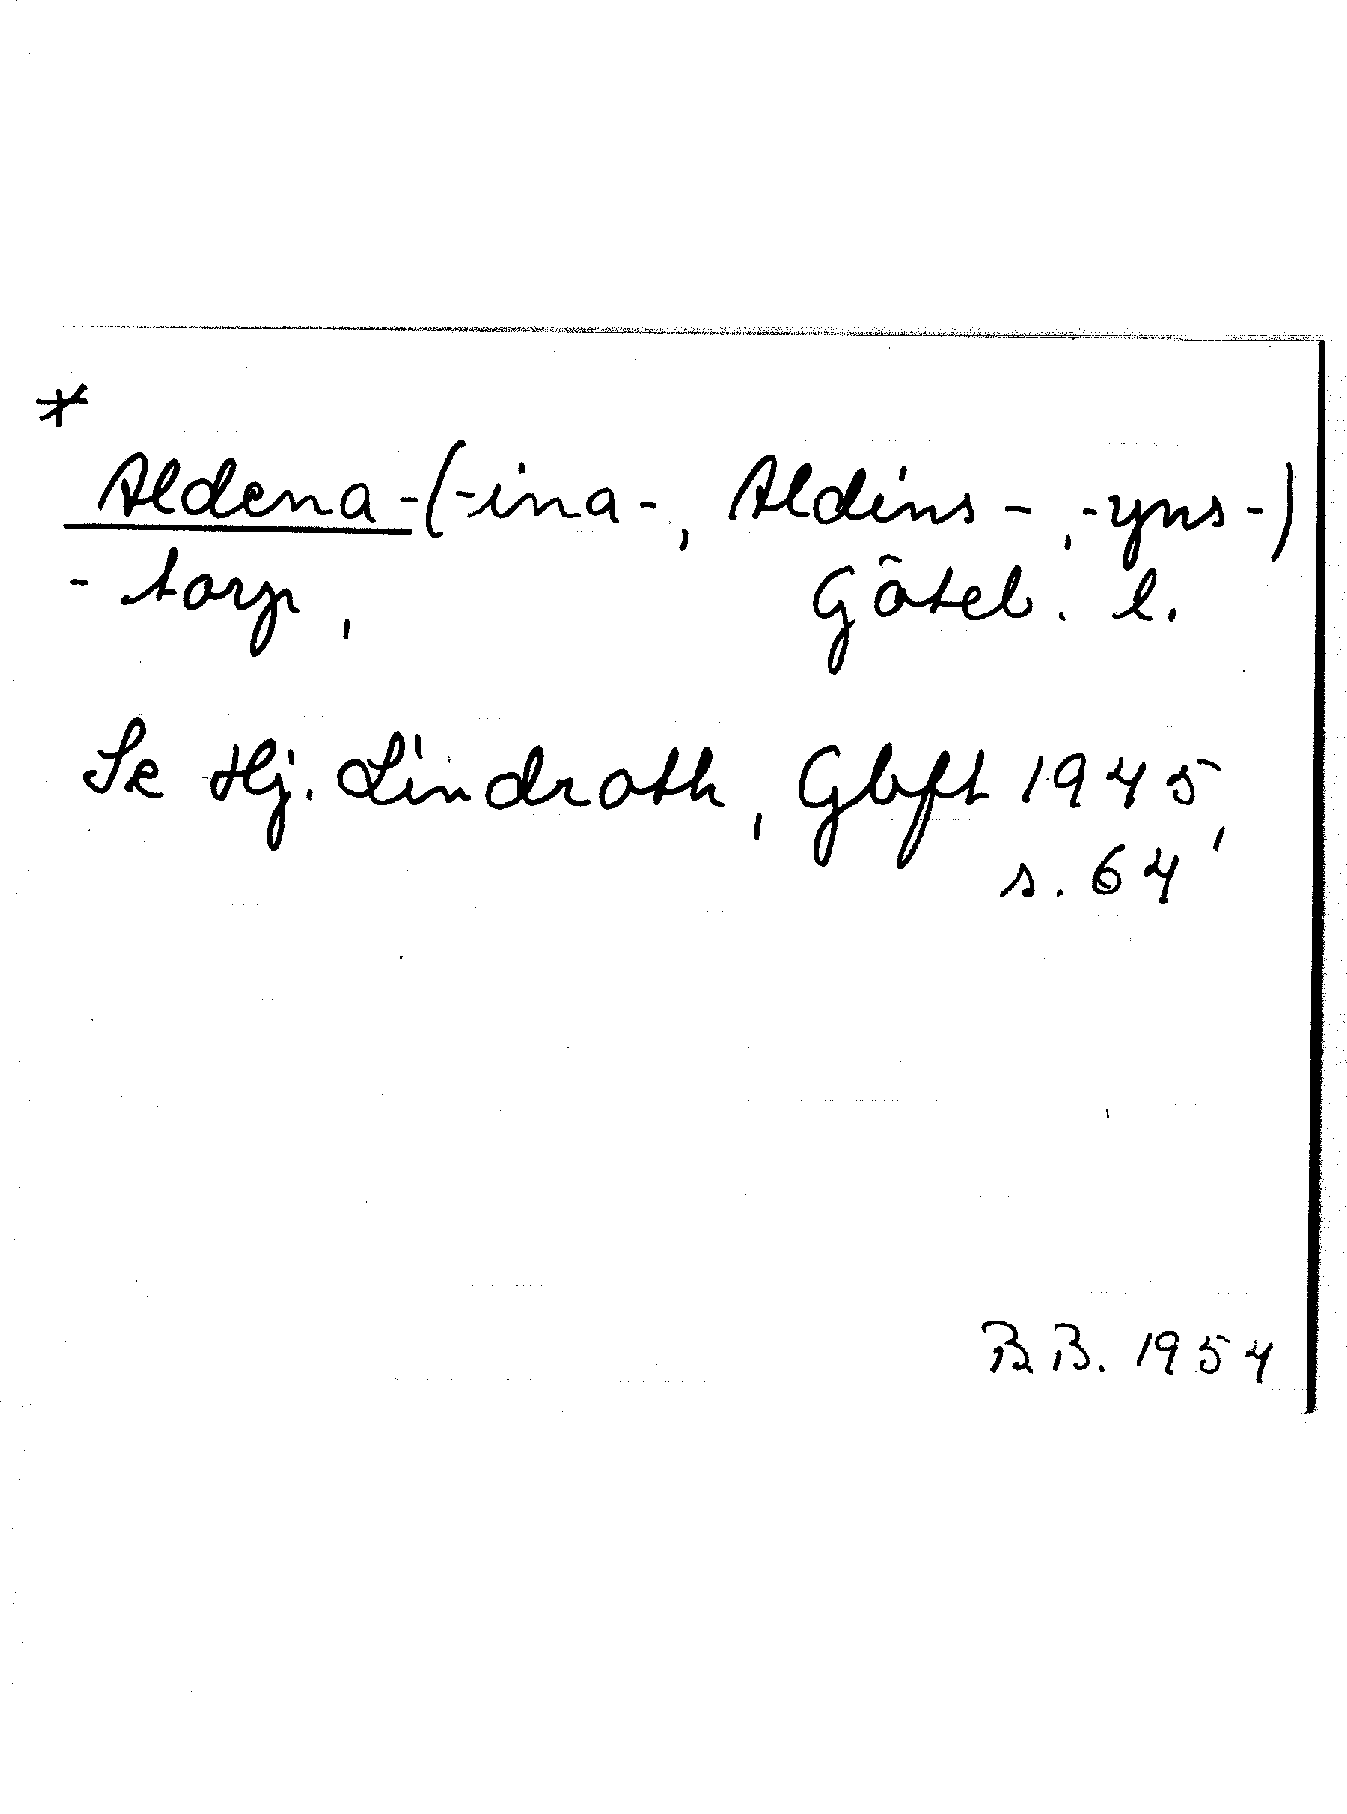 *
Aldena-(-ina-, Aldins-, -yns-)
-torp, Göteb. l.
Se Hj. Lindroth, Gbft 1945,
s. 64
B B. 1954